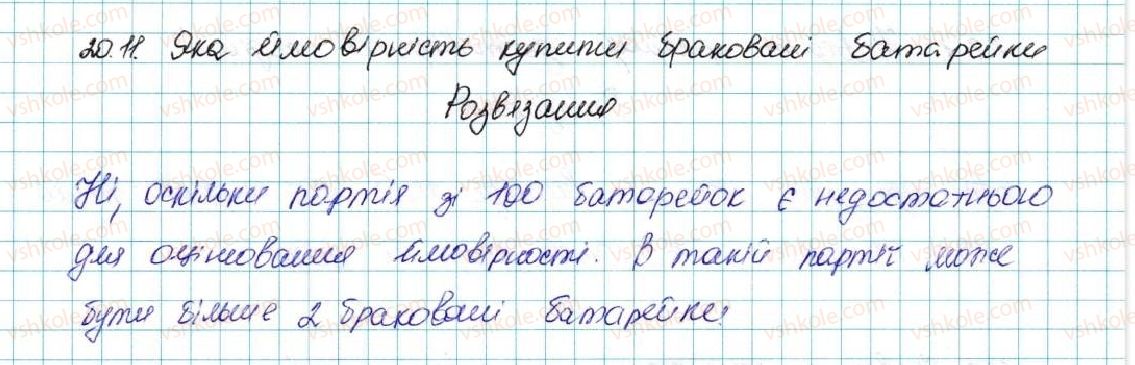 20.11. Яка ймовірність купити браковані батарейки
Розвязання
Ні, оскільки партія зі 100 баторейок є недостатнього
для оцінювання ймовірності. В такій партії може
бути більше 2 браковані батарейки.